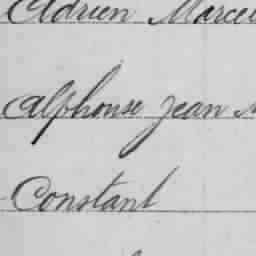 Adrien Marcel
Alphonse Jean
Constant